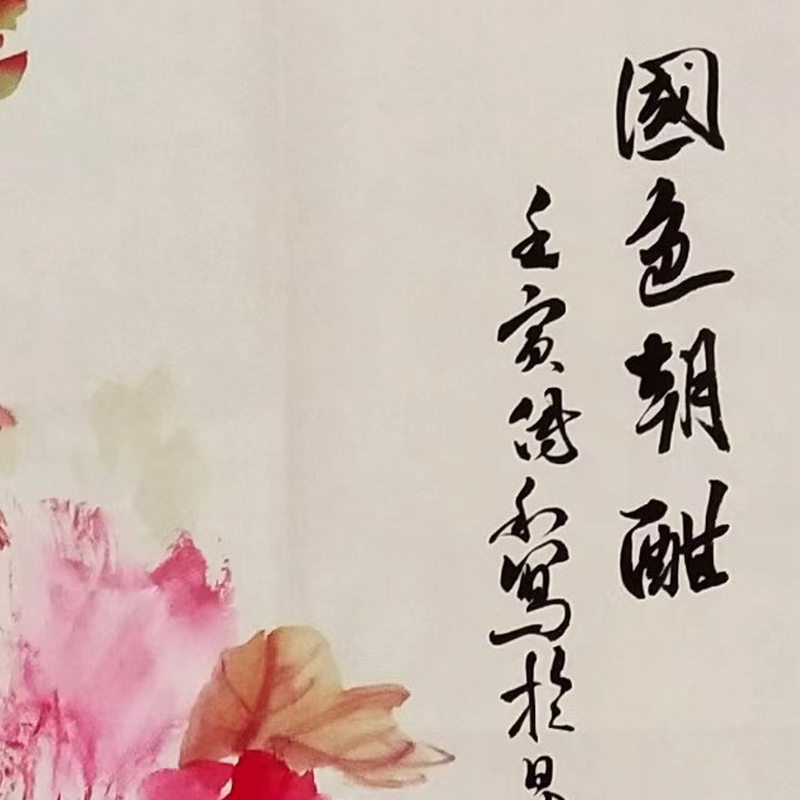 國色朝酣
壬寅傳和寫於